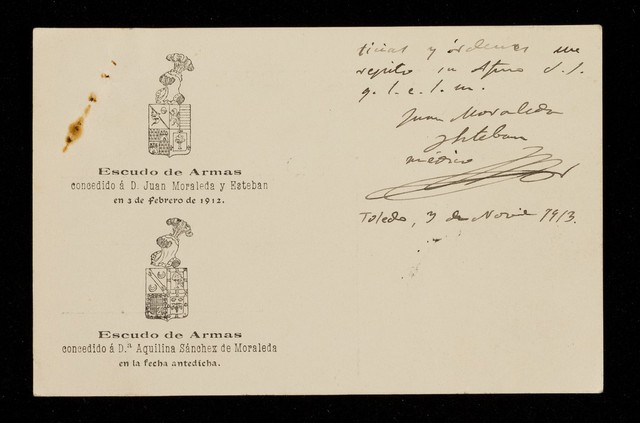 Escudo de Armas
concedido á D. Juan Moraleda y Esteban
en 3 de febrero de 1912.
Escudo de Armas
concedido á D.ª Aquilina Sánchez de Moraleda
en la fecha antedicha.
ticias y órdenes me
repito su Afmo S. S.
q. l. e. l. m.
Juan Moraleda
y Esteban
médico
Toledo, 3 de Novie 1913.